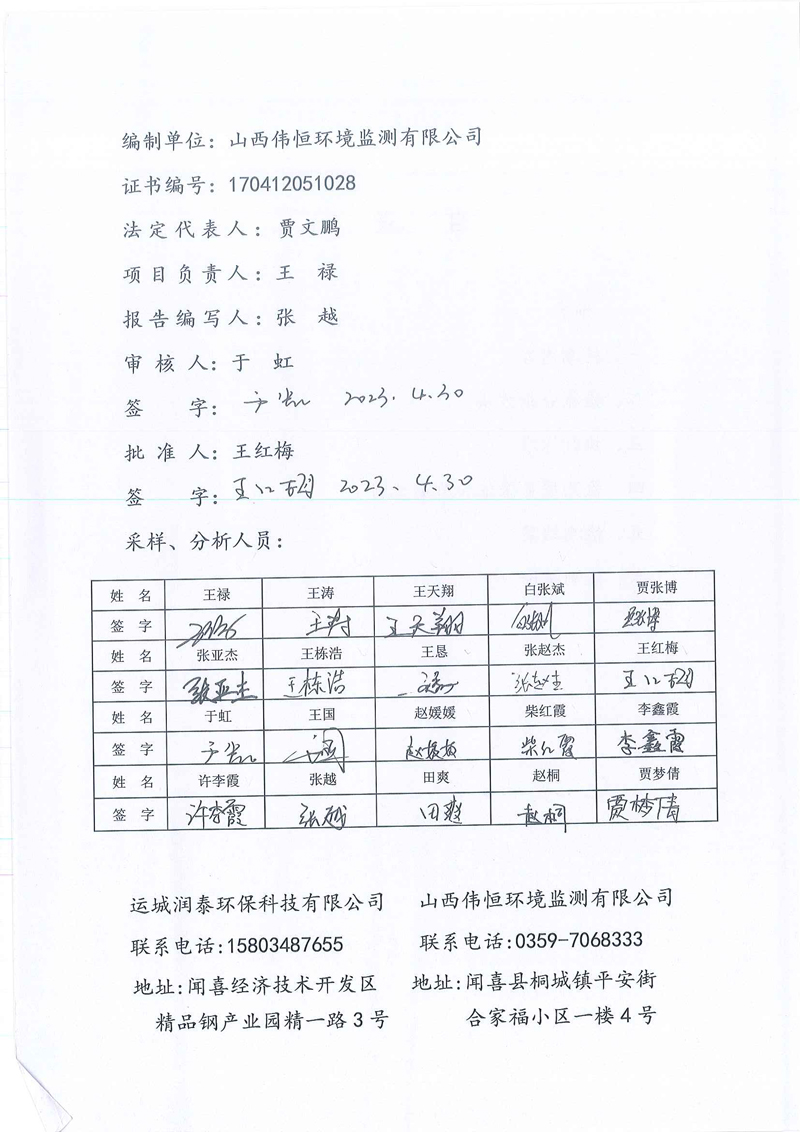 编制单位：山西伟恒环境监测有限公司
证书编号：170412051028
法定代表人：贾文鹏
项目负责人：王 禄
报告编写人：张 越
审 核 人：于 虹
签 字：于虹 2023.4.30
批 准 人：王红梅
签 字：王红梅 2023.4.30
采样、分析人员：
姓 名 王禄 王涛 王天翔 白张斌 贾张博
签 字 王涛 王天翔
姓 名 张亚杰 王栋浩 王恳 张赵杰 王红梅
签 字 张亚杰 王栋浩 张赵杰 王红梅
姓 名 于虹 王国 赵媛媛 柴红霞 李鑫霞
签 字 于虹 赵媛媛 柴红霞 李鑫霞
姓 名 许李霞 张越 田爽 赵桐 贾梦倩
签 字 许李霞 张越 田爽 赵桐 贾梦倩
运城润泰环保科技有限公司 山西伟恒环境监测有限公司
联系电话：15803487655 联系电话：0359-7068333
地址：闻喜经济技术开发区 地址：闻喜县桐城镇平安街
精品钢产业园精一路 3 号 合家福小区一楼 4 号